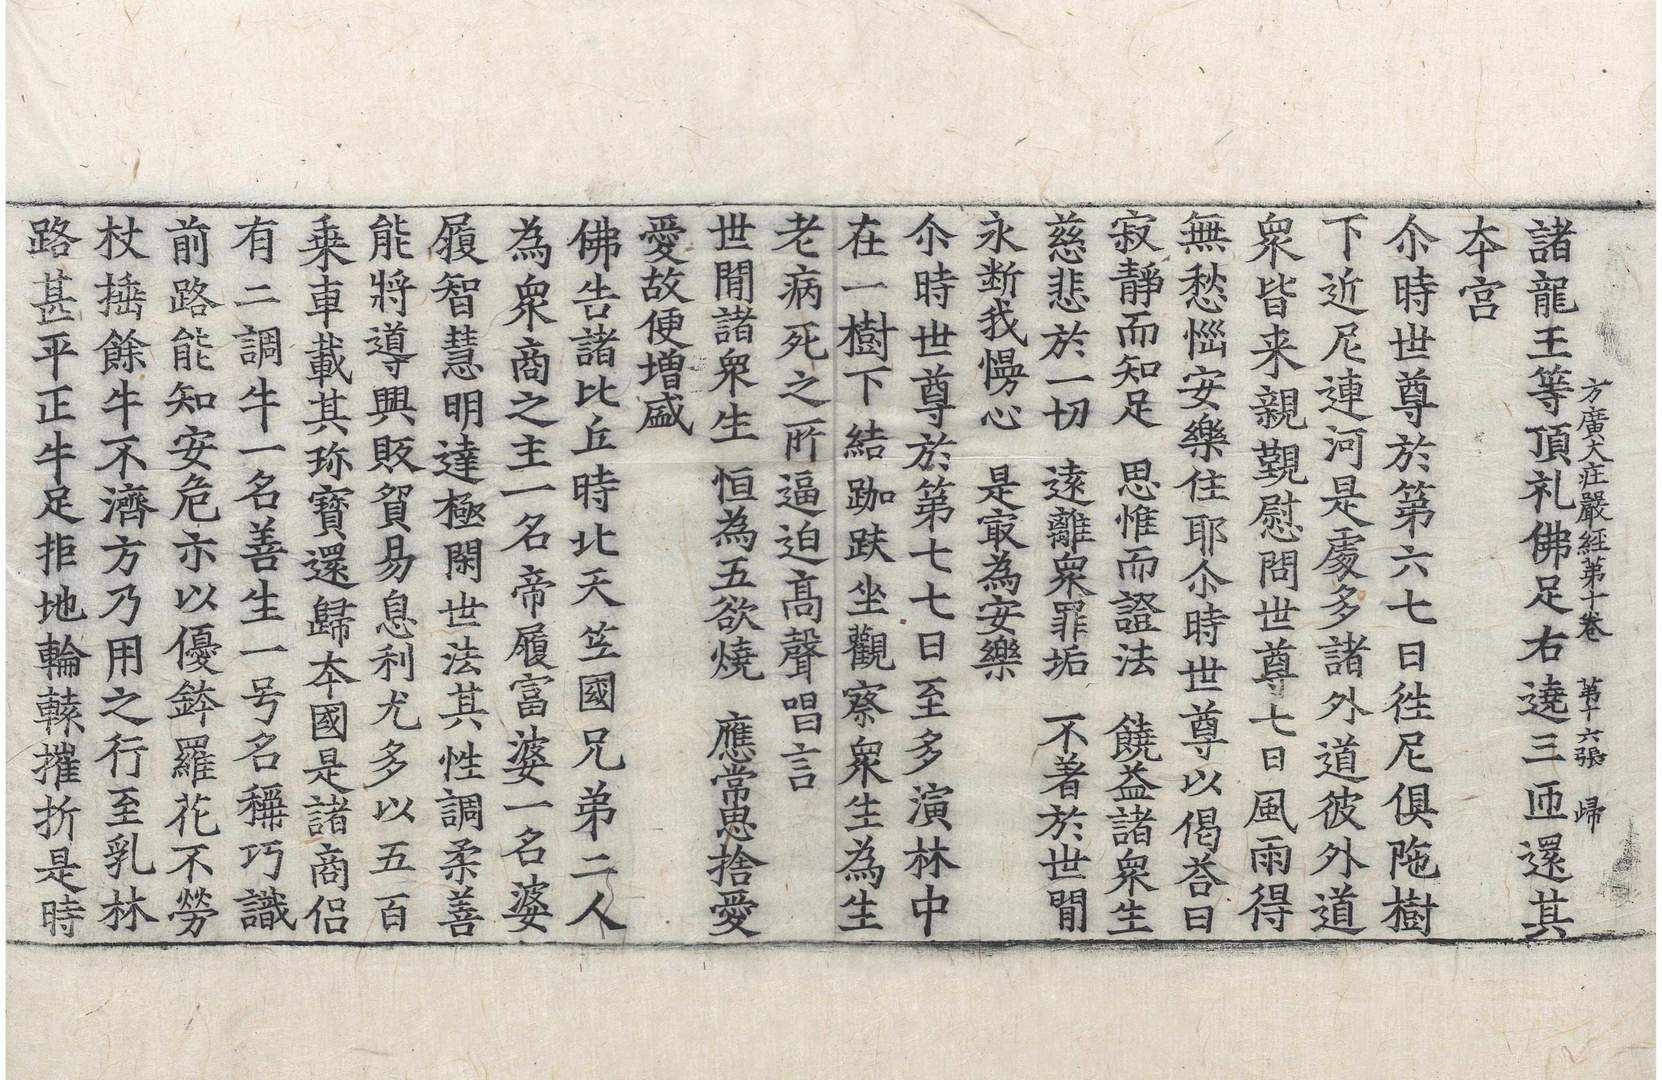 方廣大莊嚴經第十卷　第十六張　歸
諸龍王等頂礼佛足右遶三匝還其
本宮
尒時世尊於第六七日往尼俱陁樹
下近尼連河是處多諸外道彼外道
衆皆来親覲慰問世尊七日風雨得
無愁惱安樂住耶尒時世尊以偈荅曰
寂靜而知足　思惟而證法　饒益諸衆生
慈悲於一切　遠離衆罪垢　不著於世閒
永断我慢心　是冣為安樂
尒時世尊於第七七日至多演林中
在一樹下結跏趺坐觀察衆生為生
老病死之所逼迫高聲唱言
世閒諸衆生　恒為五欲燒　應常思捨愛
愛故便增盛
佛告諸比丘時北天竺國兄弟二人
為衆商之主一名帝履富婆一名婆
履智慧明達極閑世法其性調柔善
能將導興販貿易息利尤多以五百
乗車載其珎寶還歸本國是諸商侣
有二調牛一名善生一号名稱巧識
前路能知安危亦以優鉢羅花不勞
杖捶餘牛不濟方乃用之行至乳林
路甚平正牛足拒地輪轅摧折是時